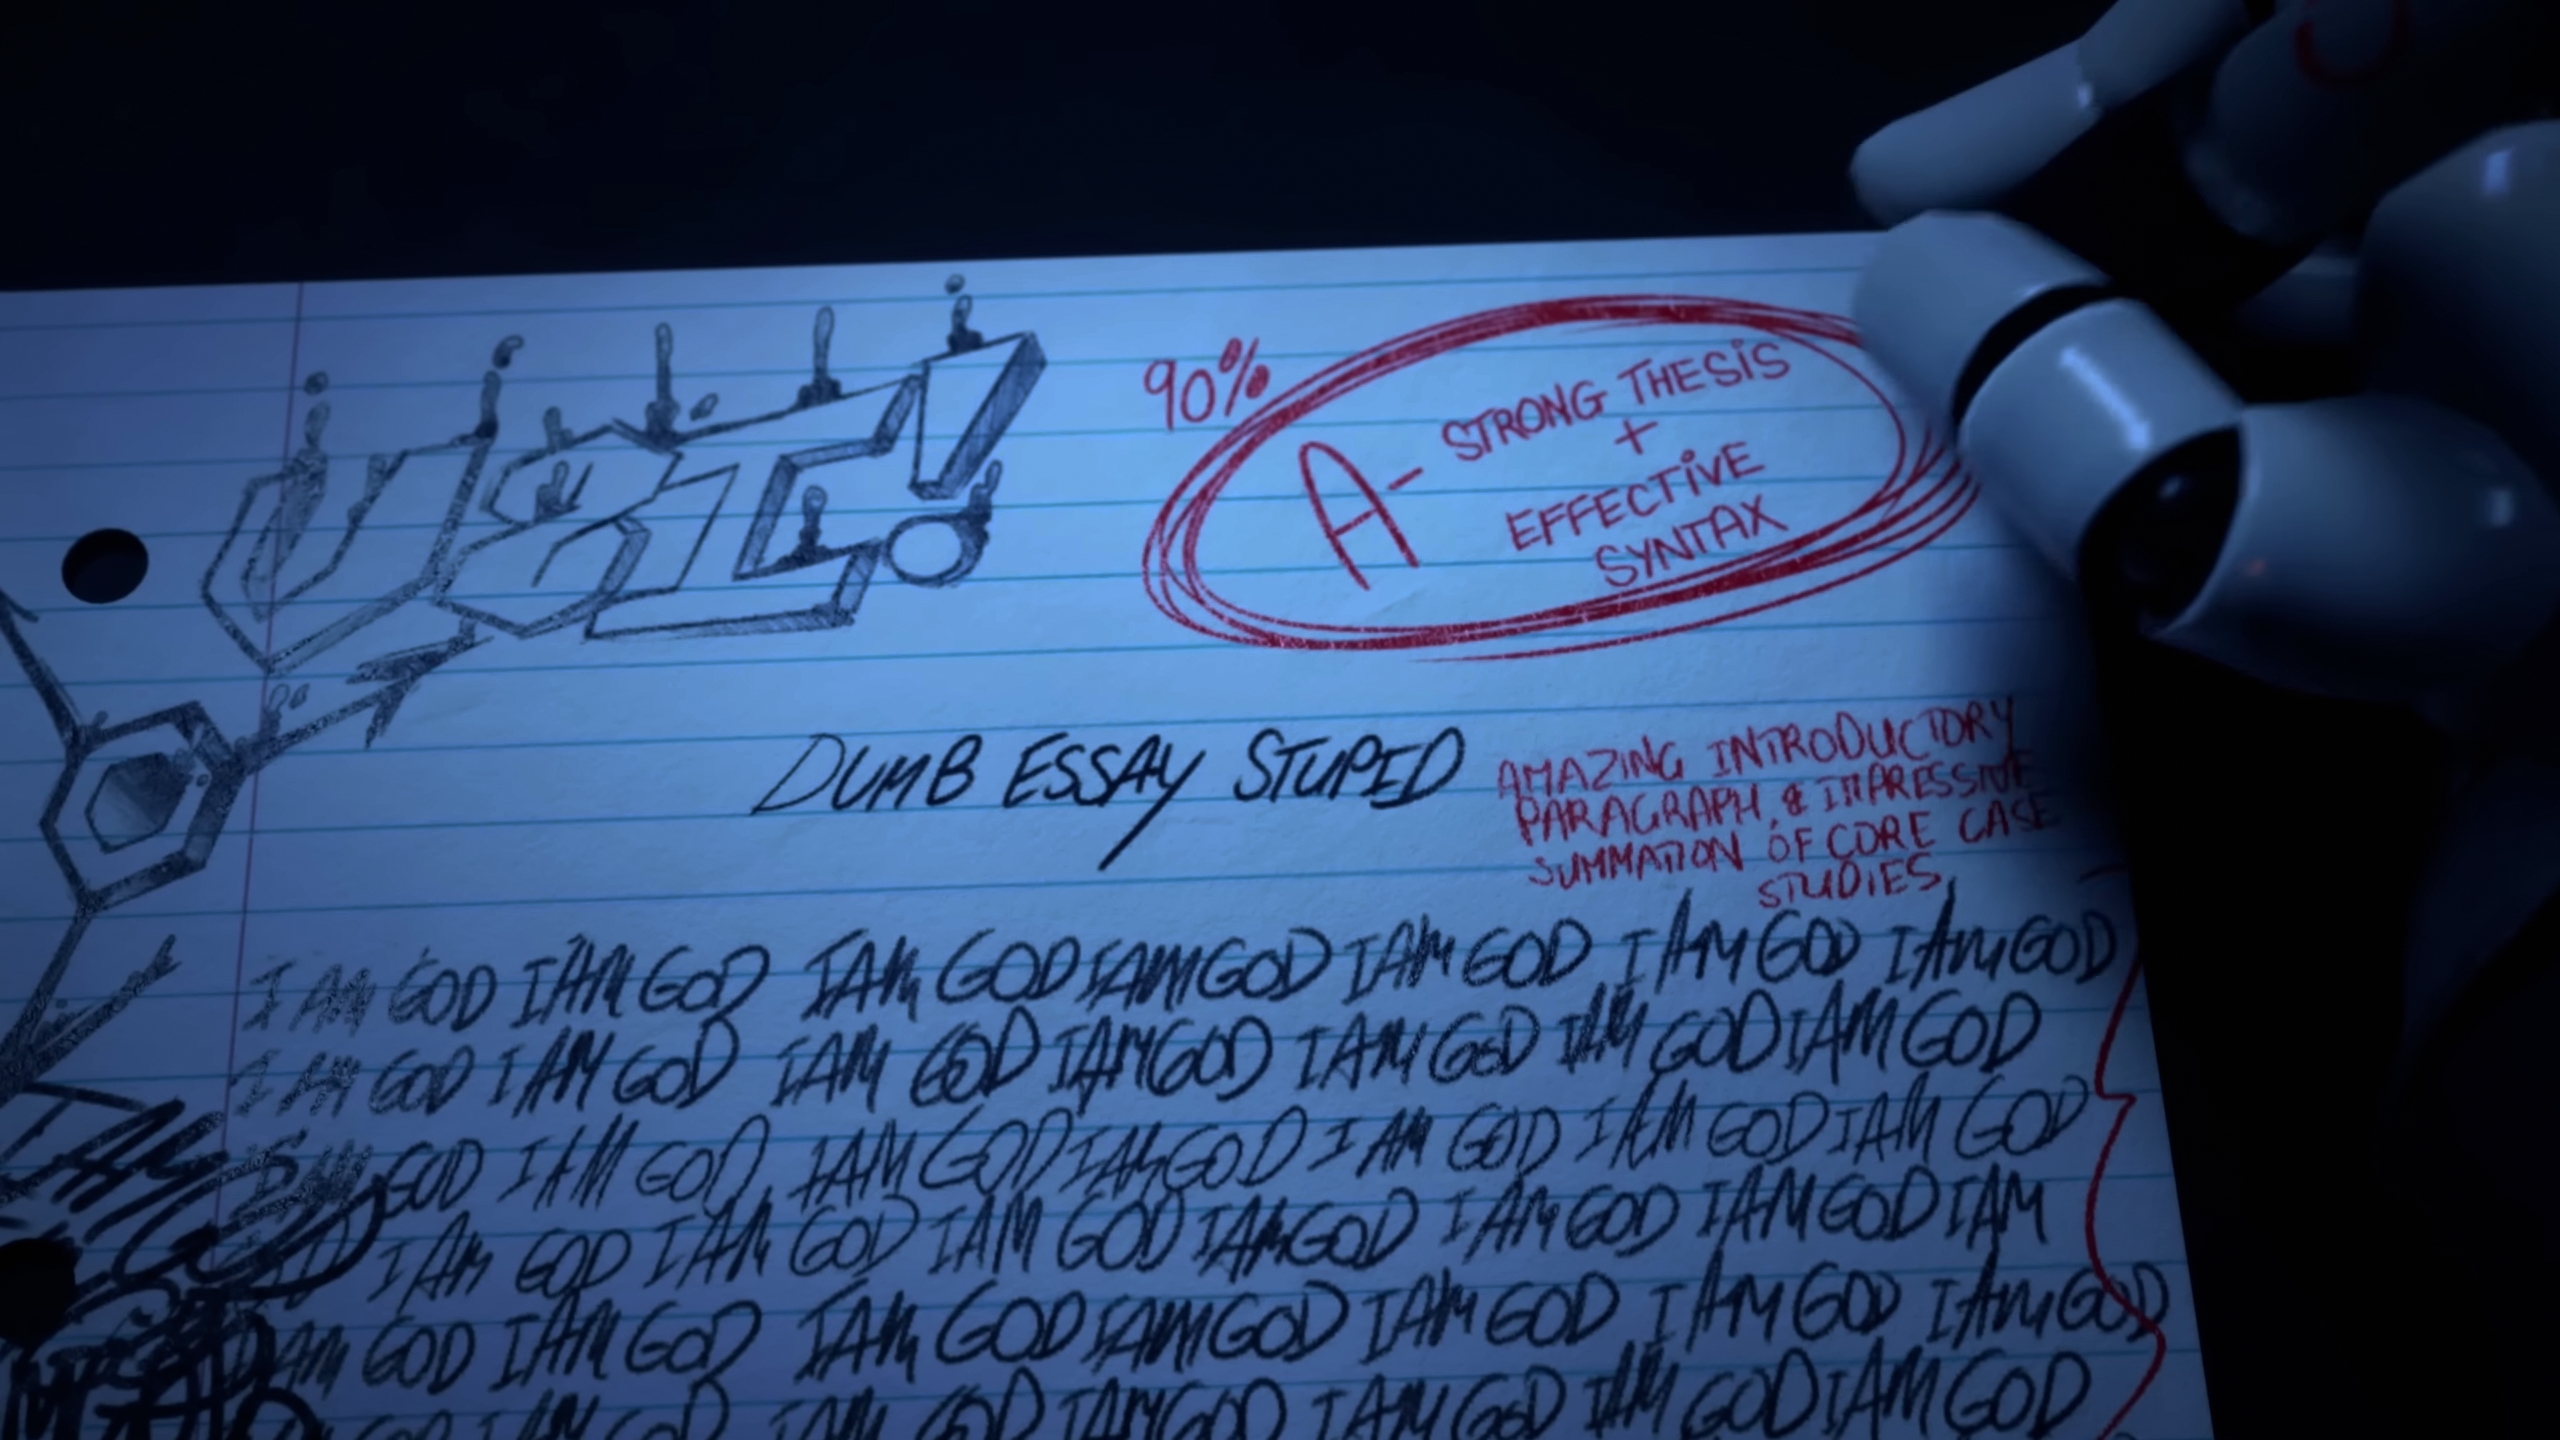 90%
A- STRONG THESIS
+
EFFECTIVE
SYNTAX
DUMB ESSAY STUPID
AMAZING INTRODUCTORY
PARAGRAPH, & IMPRESSIVE
SUMMATION OF CORE CASE
STUDIES
I AM GOD I AM GOD I AM GOD I AM GOD I AM GOD I AM GOD I AM GOD
I AM GOD I AM GOD I AM GOD I AM GOD I AM GOD I AM GOD I AM GOD
I AM GOD I AM GOD I AM GOD I AM GOD I AM GOD I AM GOD I AM GOD
I AM GOD I AM GOD I AM GOD I AM GOD I AM GOD I AM GOD I AM
I AM GOD I AM GOD I AM GOD I AM GOD I AM GOD I AM GOD I AM GOD
I AM GOD I AM GOD I AM GOD I AM GOD I AM GOD I AM GOD